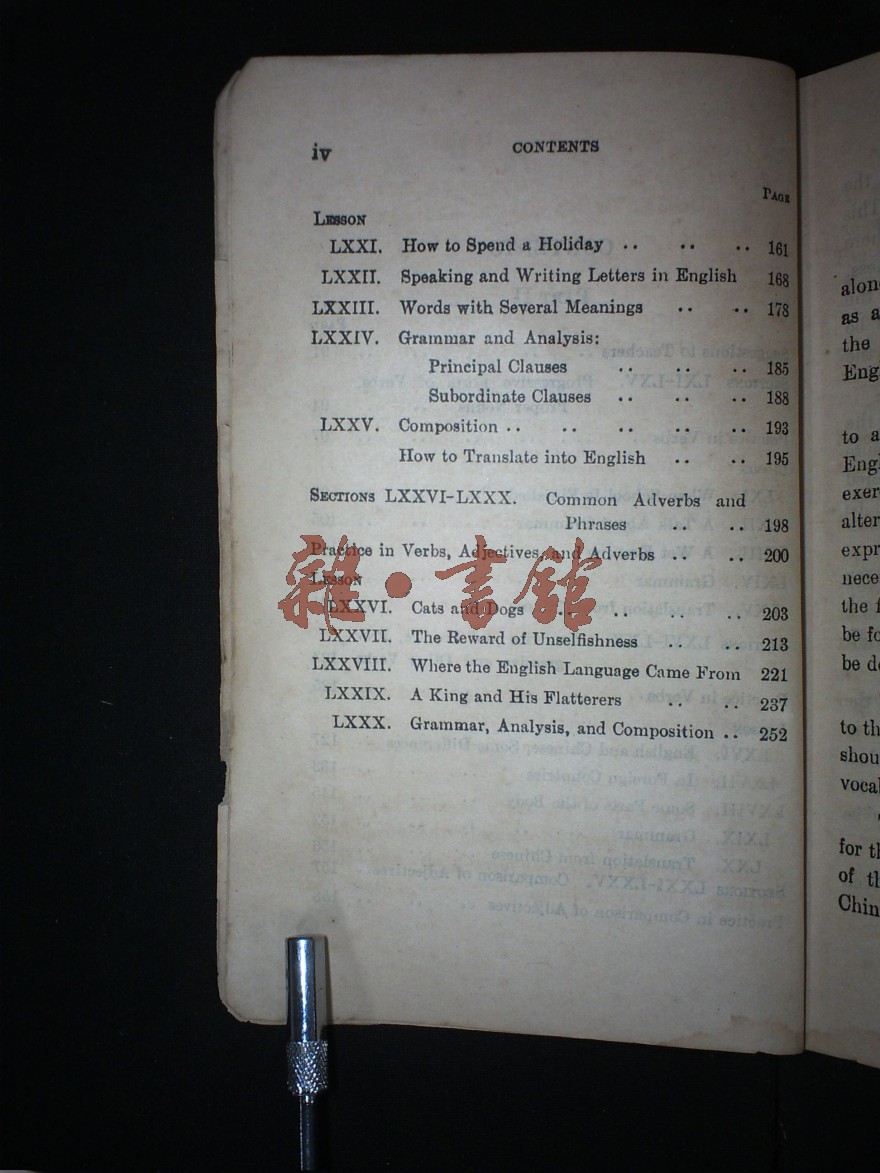 iv CONTENTS
PAGE
LESSON
LXXI. How to Spend a Holiday .. .. .. 161
LXXII. Speaking and Writing Letters in English 168
LXXIII. Words with Several Meanings .. .. 178
LXXIV. Grammar and Analysis:
Principal Clauses .. .. .. 185
Subordinate Clauses .. .. .. 188
LXXV. Composition .. .. .. .. .. 193
How to Translate into English .. .. 195
SECTIONS LXXVI-LXXX. Common Adverbs and
Phrases .. .. 198
Practice in Verbs, Adjectives, and Adverbs .. .. 200
LESSON
LXXVI. Cats and Dogs .. .. .. .. 203
LXXVII. The Reward of Unselfishness .. .. 213
LXXVIII. Where the English Language Came From 221
LXXIX. A King and His Flatterers .. .. 237
LXXX. Grammar, Analysis, and Composition .. 252
雜·書館
as a
the
to a
the f
be fo
be de
to th
for th
of th